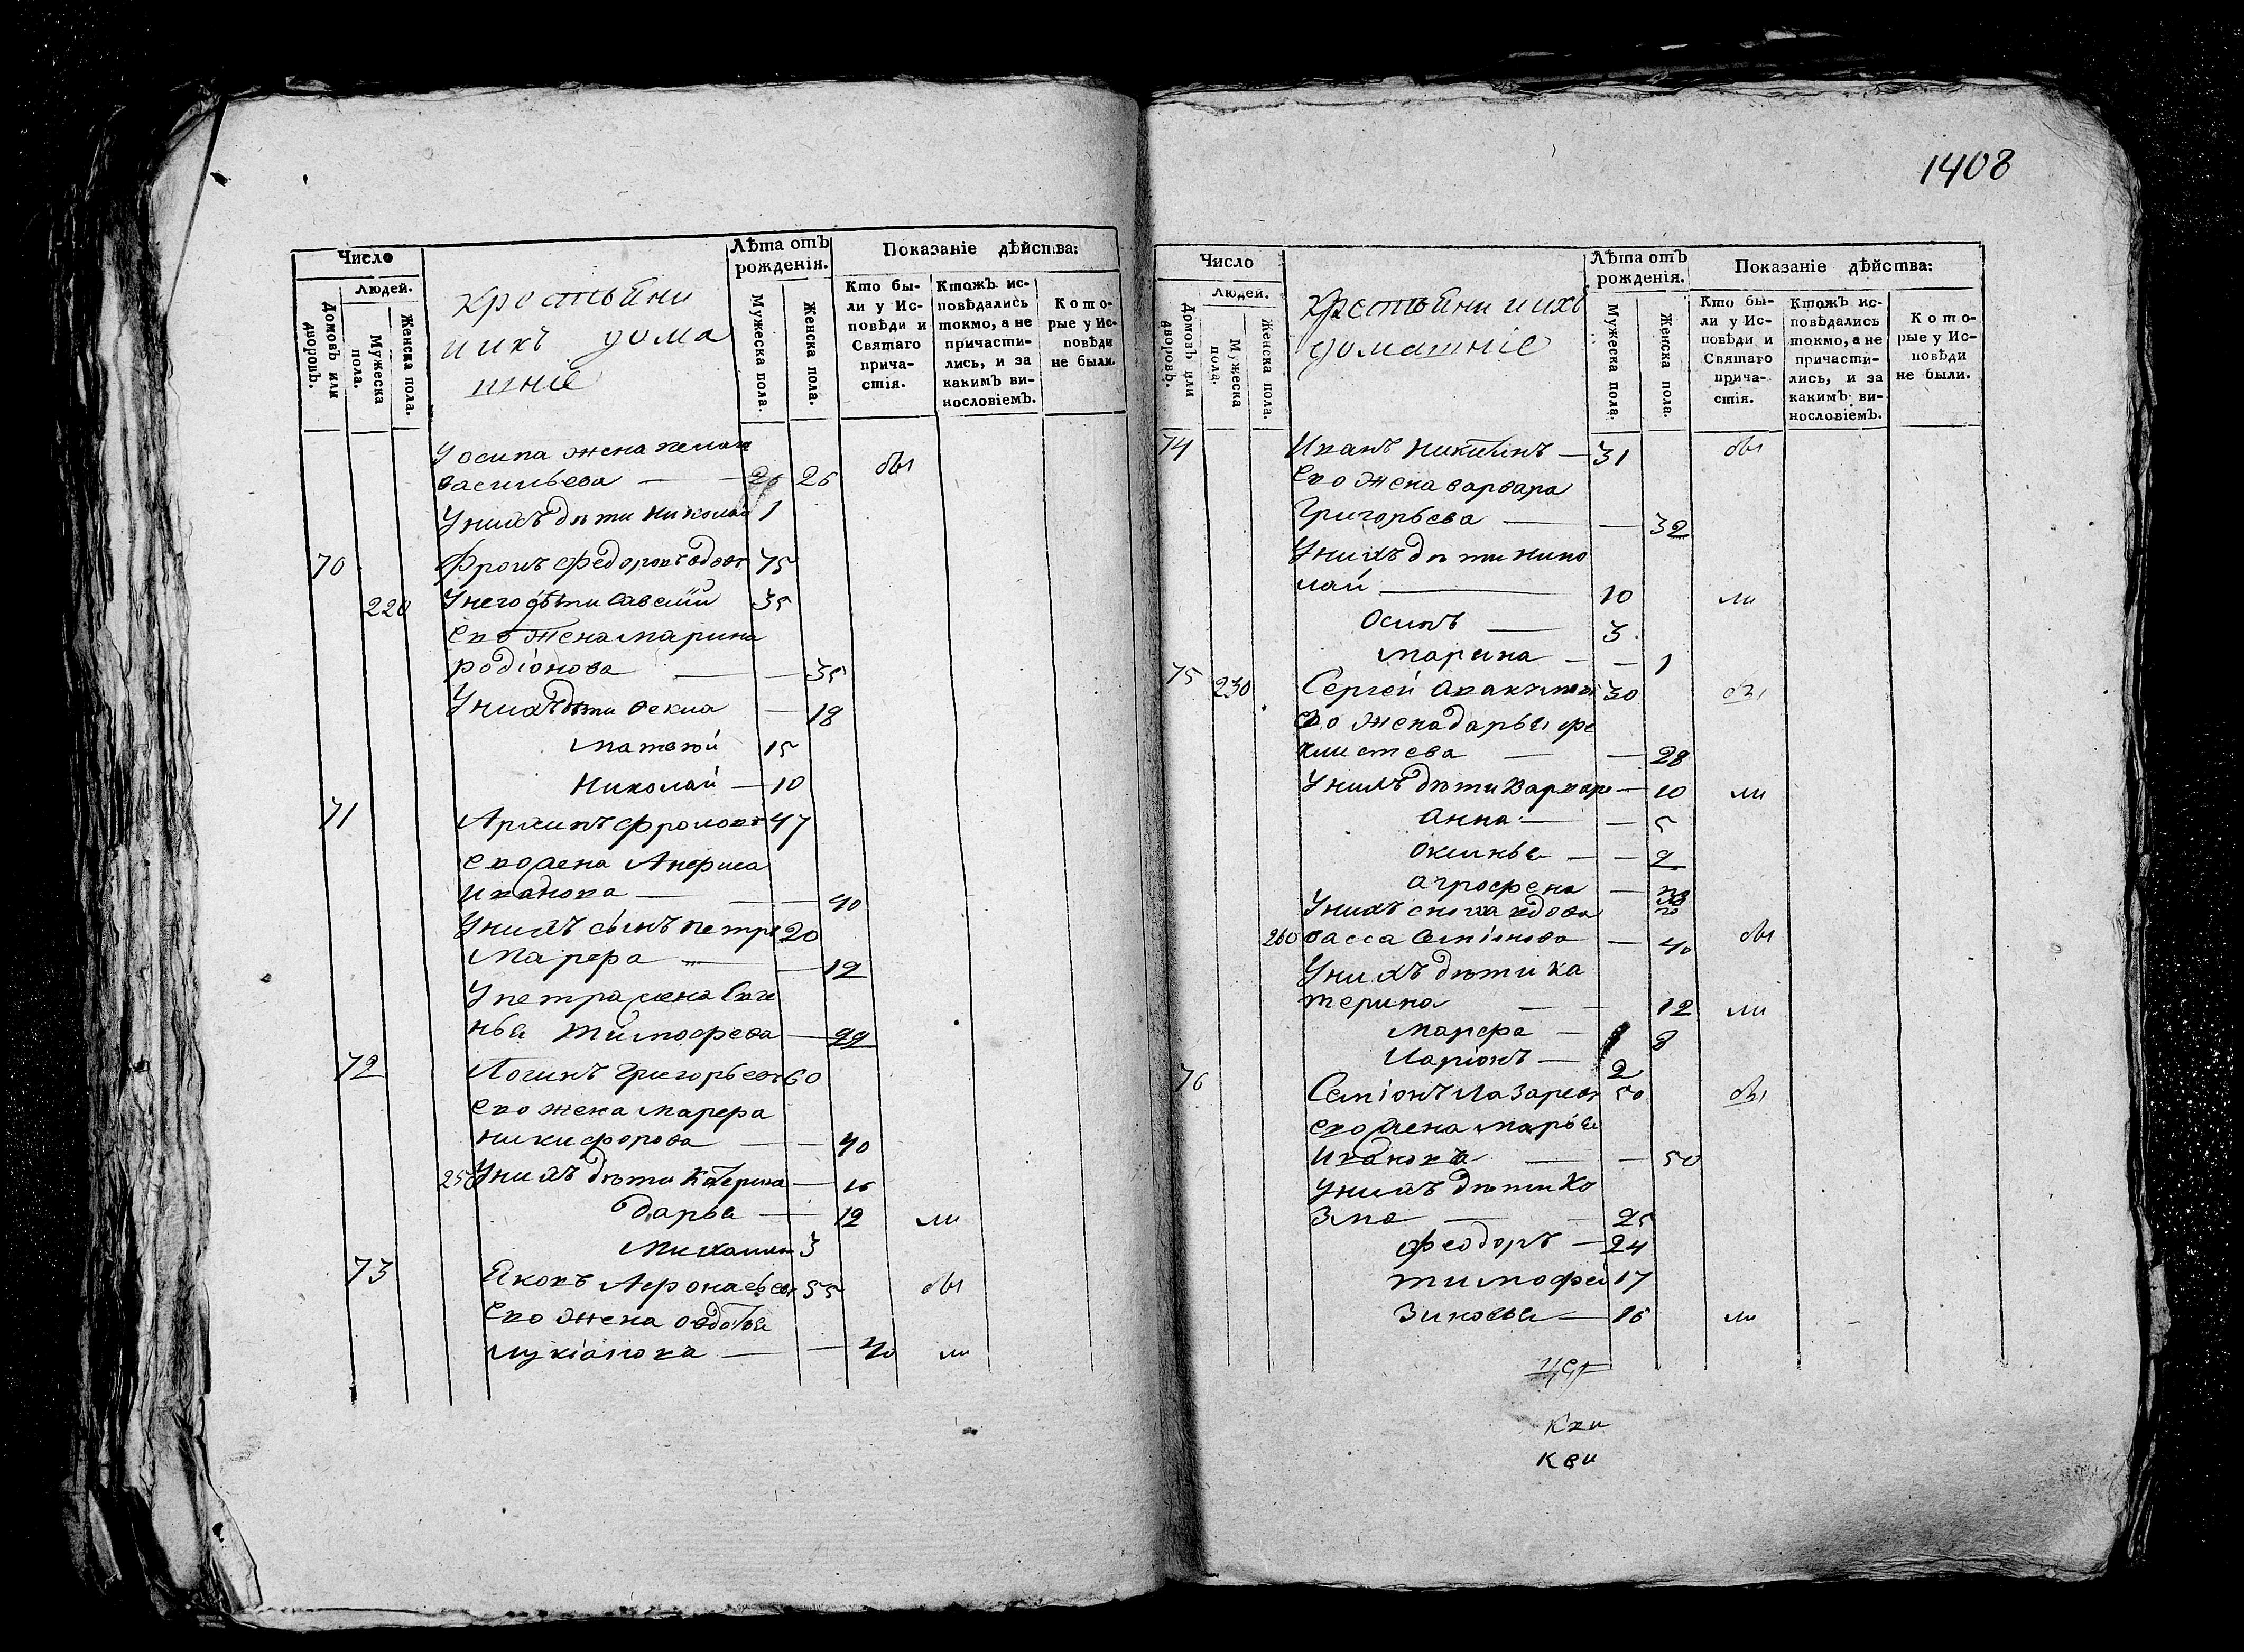 1408
Число
Лѣта отъ рожденія.
Показаніе дѣйства:
Людей.
Домовъ или дворовъ.
Мужеска пола.
Женска пола.
крестьяни
и ихъ дома
шніе
Мужеска пола.
Женска пола.
Кто были у Исповѣди и Святаго причастія.
Ктожъ исповѣдались токмо, а не причастились, и за какимъ винословіемъ.
Которые у Исповѣди не были.
У осипа жена пелаги
васильева — 26 26 бы
У нихъ дѣти николай 1
70 Фролъ Федоровъ вдовъ 75
220 У него дѣти савелий 35
Ево жена марина
родіонова — — 35
У нихъ дѣти Фекла — 18
матвѣй 15
Николай — 10
71 Архипъ Фроловъ 47
ево жена Анфиса
иванова — — 40
У нихъ сынъ петръ 20
Марфа — — 19
У петра жена Евге
нья тимофеева — 22
72 Логинъ Григорьевъ 60
ево жена марфа
никифорова — — 40
250 У нихъ дѣти катерина — 16
дарья — 12 ли
михаила 3
73 Яковъ Афонасьевъ 55 бы
Ево жена овдотья
лукіянова — — 40 ли
Число
Лѣта отъ рожденія.
Показаніе дѣйства:
Людей.
Домовъ или дворовъ.
Мужеска пола.
Женска пола.
крестьяни и ихъ
домашніе
Мужеска пола.
Женска пола.
Кто были у Исповѣди и Святаго причастія.
Ктожъ исповѣдались токмо, а не причастились, и за какимъ винословіемъ.
Которые у Исповѣди не были.
74 Иванъ Никитинъ — 31 бы
Ево жена варвара
Григорьева — — 32
У нихъ дѣти нико
лай — 10 ли
Осипъ — 3
марина — — 1
75 230 Сергей 30 бы
ево жена дарья фе
клистева — — 28
У нихъ дѣти варвара — 10 ли
Анна — — 5
оксинья — — 2
агрофена —
У нихъ сноха вдова
260 васса Семіонова — 40 бы
У нихъ дѣти ка
терина — — 12 ли
марфа — 8
Ларіонъ — 2
76 Семіонъ Лазаревъ 50 бы
ево жена марья
Иванова — — 50
У нихъ дѣти Ко
зма — 25
Феодоръ — 24
тимофей 17
Зиновья — 16 ли